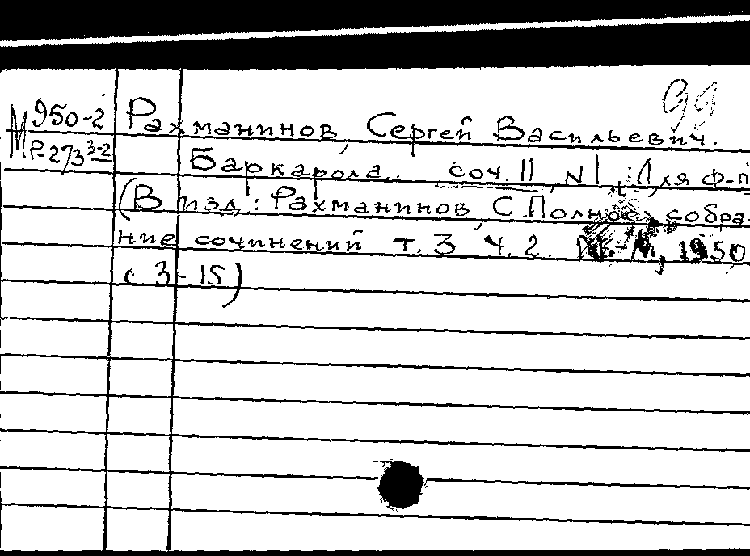 99
М 950-2
Р-273 3-2
Рахманинов, Сергей Васильевич.
Баркарола. соч. 11, N 1. Для ф-п
(В изд.: Рахманинов, С Полное собра-
ние сочинений т. 3 ч. 2. М., 1950
с 3-15)